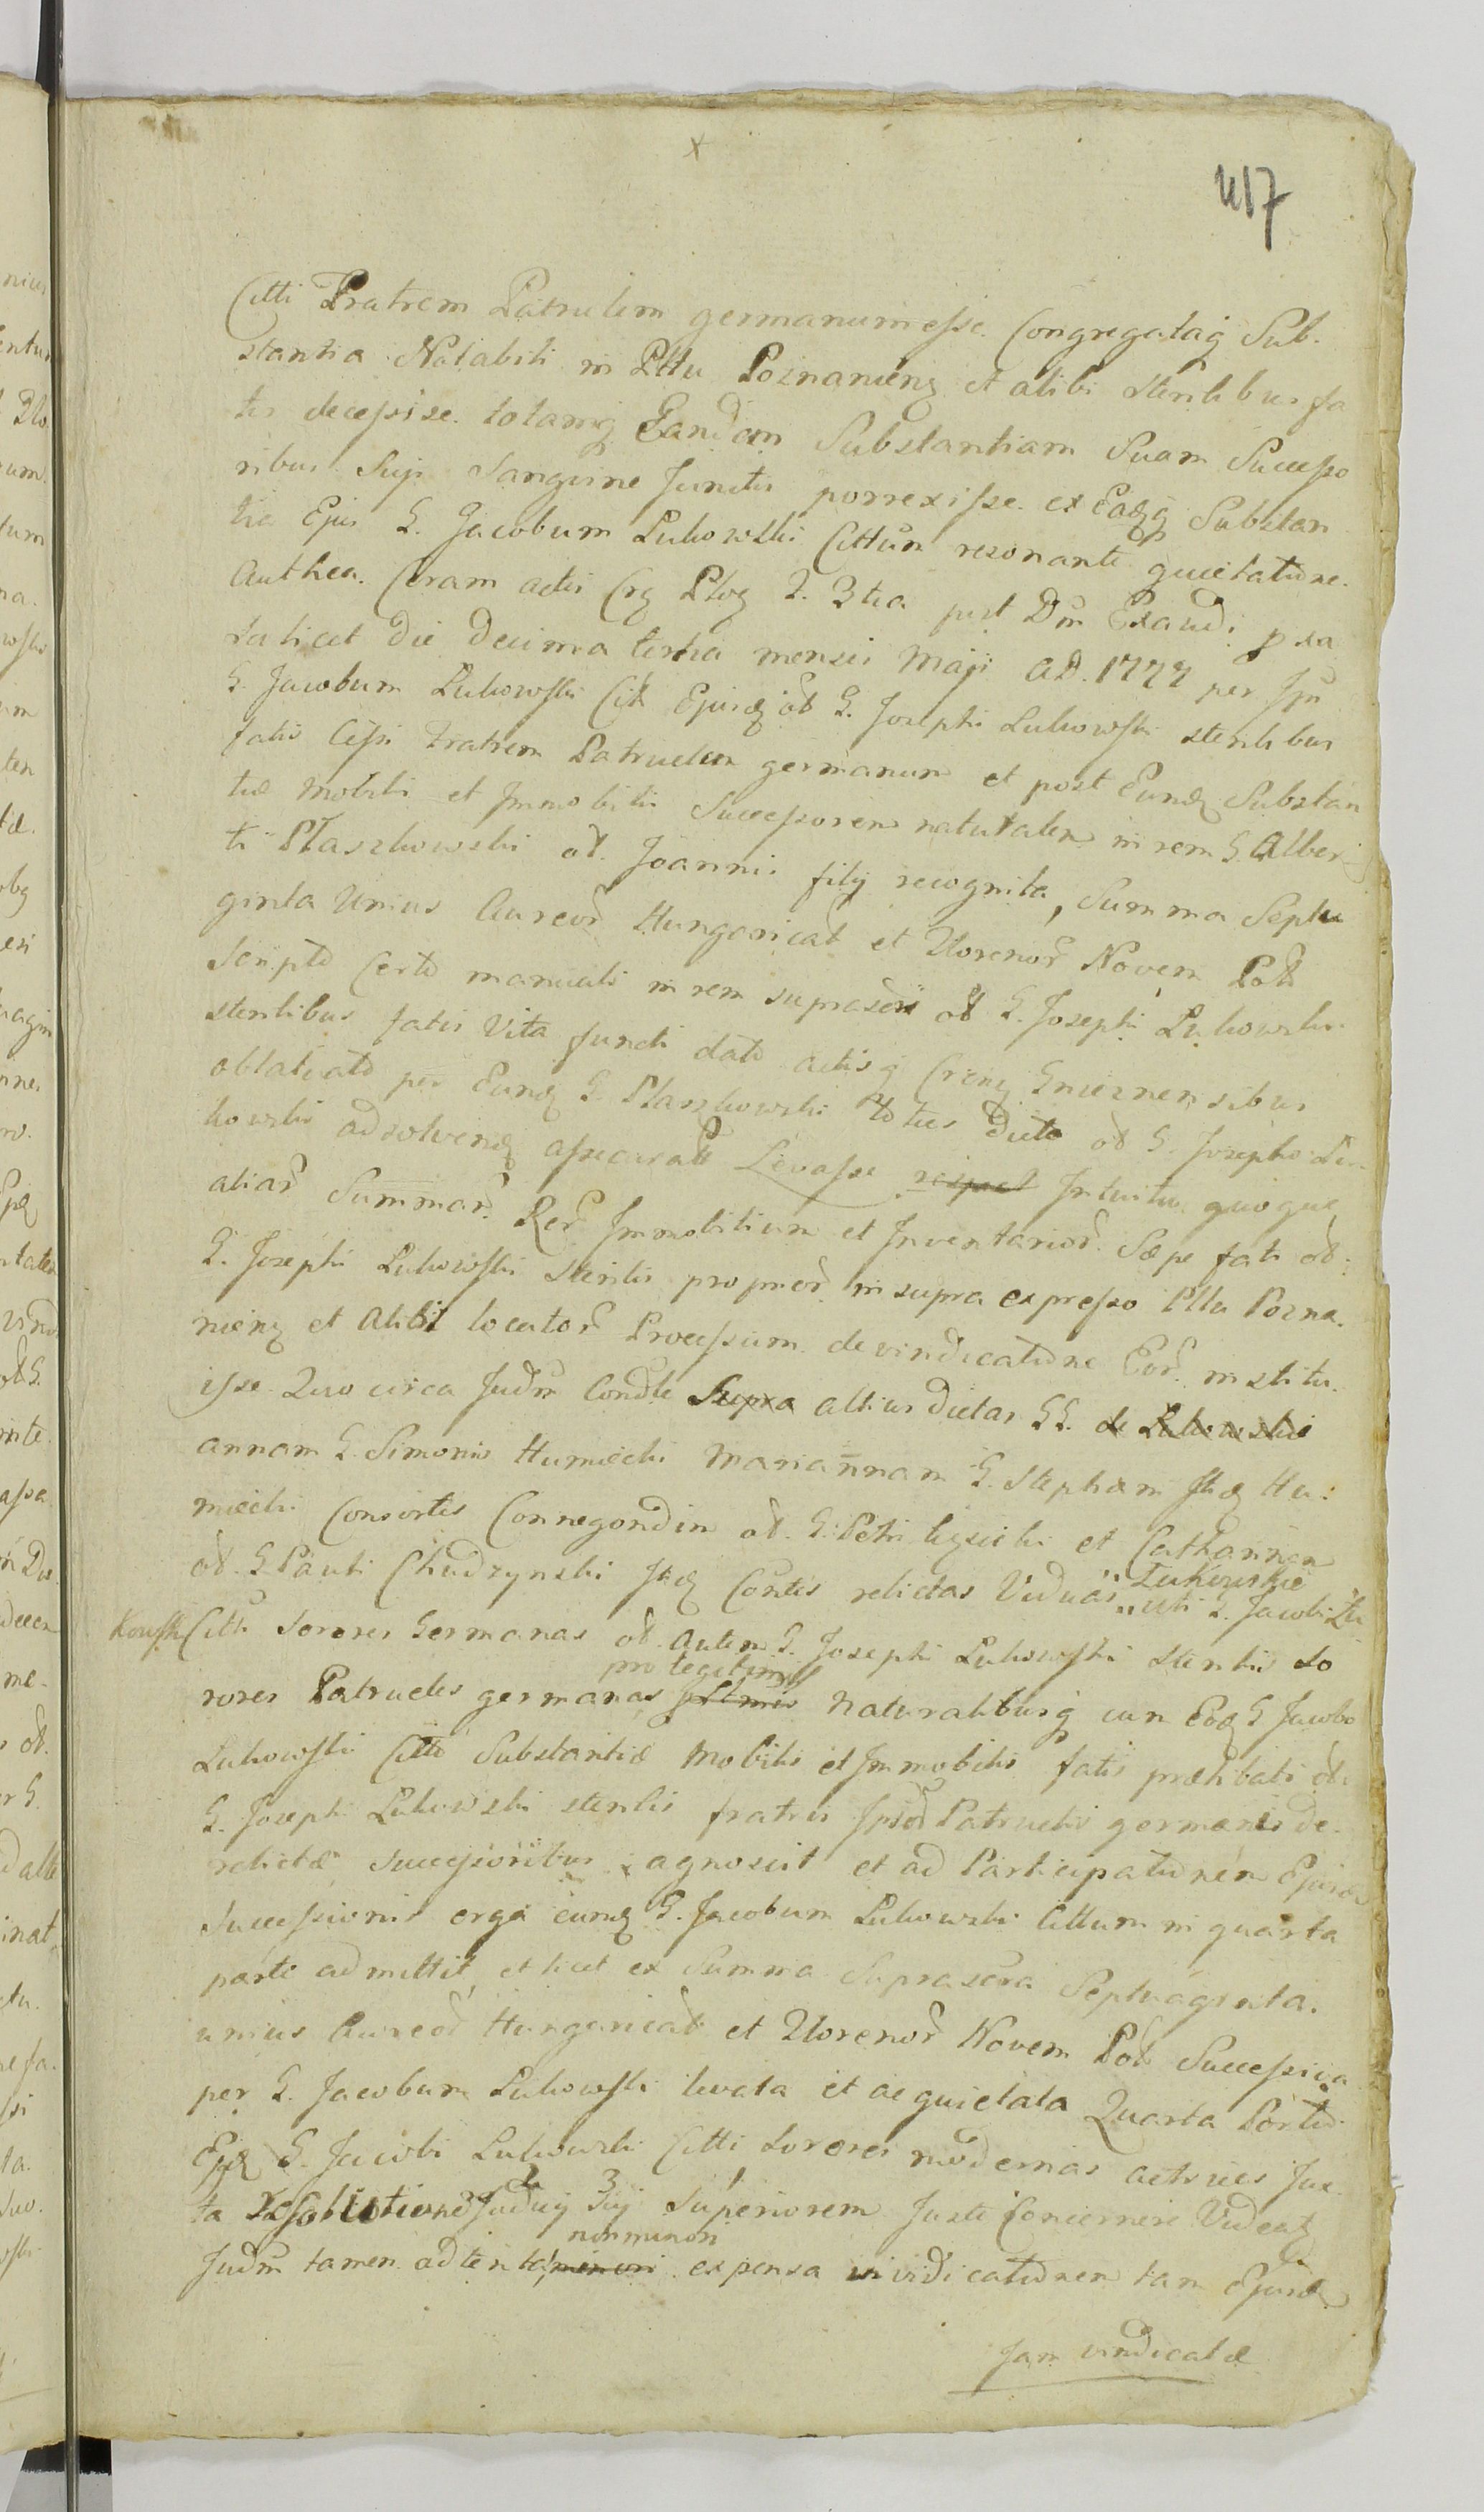 x
417
Citti Fratrem Patruelem germanum esse. Congregataq Sub-
stantia Notabili in Pttu Poznanienq et alibi sterilibus fa
tis decessisse. totamq Eandem Substantiam Suam Successo
ribus Suji Sanguine Junctis porrexisse. et Eadq Substan
tia Ejus G. Jacobum Lukowski Cittum rezonante quietatione
Authen. Coram actis Crq Plbq F. 3tia post Dm Exaudi pxa
scilicet die decima tertia mensis Maji AD. 1777 per Jpm
G. Jacobum Lukowski Citt Ejusdq od G. Josephi Lukowski sterilibus
fatis Cessi Fratrem Patruelem germanum et post Eundq Substan
tiæ Mobilis et Immobilis Successorem naturalem in rem G. Alber
ti Ptaszkowski od. Joannis filij recognita, Summa Septua
ginta Unius Aureor Hungarical et Florenor Novem Pol
Scripto Certo manuali in rem suprascri od G. Josephi Lukowski
sterilibus fatis Vita functi dato actisq Crenq Gnieznensibus
oblatato per Eundq G. Ptaszkowski toties dicto od G. Josepho Lu
kowski adsolvendq assecurata Levasse respect Intuitu quoque
aliar Summar. Rer Immobilium et Inventarior. Sæpe fati od.
G. Josephi Lukowski Sterilis proprior in supra expresso Pttu Pozna
nienq et Alibi locator Processum de vindicatione Eor. institu
isse. Quo circa Judm Condle Supra altius dictas GG. de Lukowskie
annam G. Simonis Humiecki Mariannam G. Stephani Itdq Hu:
miecki Consortes Connegondin od. G. Petri et Catharinam
od. G Pauli Chudzynski Itdq Contes relictas Viduas Lukowskie uti G. Jacobi Lu
kowski Citti Sorores Germanas od. autem G. Josephi Lukowski Sterilis So
rores Patrueles germanas pro legitimis naturalibusq cum Eodq G Jacobo
Lukowski Citto Substantiæ Mobilis et Immobilis fatis prælibati od.
G. Josephi Lukowski sterilis fratris Jpsor Patruelis germani de
relictæ Successoribus agnoscit et ad Participationem Ejusdq
Successionis erga eundq G. Jacobum Lukowski Cittum in quarta
parte admittit, et licet ex Summa Suprascra Septuaginta
unius Aureor Hungarical et Florenor Novem Pol Successiva
per G. Jacobum Lukowski levata et ac quietata Quarta Portio
Ejdq G. Jacobi Lukowski Citti Sorores modernas actrices Jux
ta Resolutione Judicij 2 Sui 3 Superiorem 1 Juste Concernere Videatq
Judm tamen adtenta non minori expensa in vindicationem tam Ejusdq
Jam vindicatæ